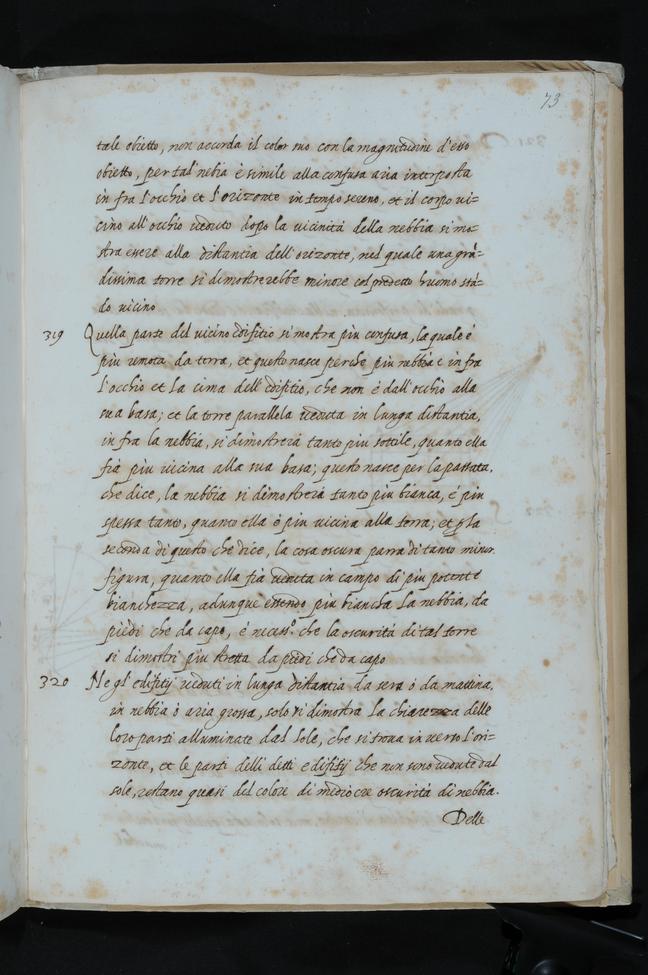 73
tale obietto, non accorda il color suo con la magnitudine d'esso
obietto, per tal nebia è simile alla confusa aria interposta
in fra l'occhio et l'orizonte in tempo sereno, et il corpo ui=
cino all'occhio ueduto dopo la uicinità della nebbia si mo=
stra essere alla distantia dell'orizonte, nel quale una grā=
dissima torre si dimostrerebbe minore col predetto huomo stā=
do uicino
319 Quella parte del uicino edifitio si mostra più confusa, la quale è
più remota da terra, et questo nasce perche più nebbia è in fra
l'occhio et la cima dell'edifitio, che non è dall'occhio alla
sua basa; et la torre parallela ueduta in lunga distantia,
in fra la nebbia, si dimostrerà tanto piu sottile, quanto ella
fia più uicina alla sua basa; questo nasce per la passata,
che dice, la nebbia si dimostrerà tanto più bianca, è piu
spessa tanto, quanto ella è piu uicina alla terra; et p la
seconda di questo che dice, la cosa oscura parra di tanto minor
figura, quanto ella fia ueduta in campo di più potente
bianchezza, adunque essendo più biancha la nebbia, da
piedi che da capo, è necess.o che la oscurità di tal torre
si dimostri piu stretta da piedi che da capo
320 Negl'edifitij ueduti in lunga distantia da sera ò da mattina,
in nebbia ò aria grossa, solo si dimostra la chiarezza delle
loro parti alluminate dal sole, che si troua in uerso l'ori=
zonte, et le parti delli detti edifitij che non sono uedute dal
sole, restano quasi del colore di mediocre oscurità di nebbia.
Delle